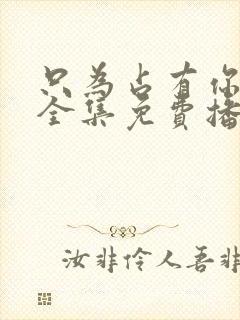 只為占有你
全集免費播
汝非伶人吾非